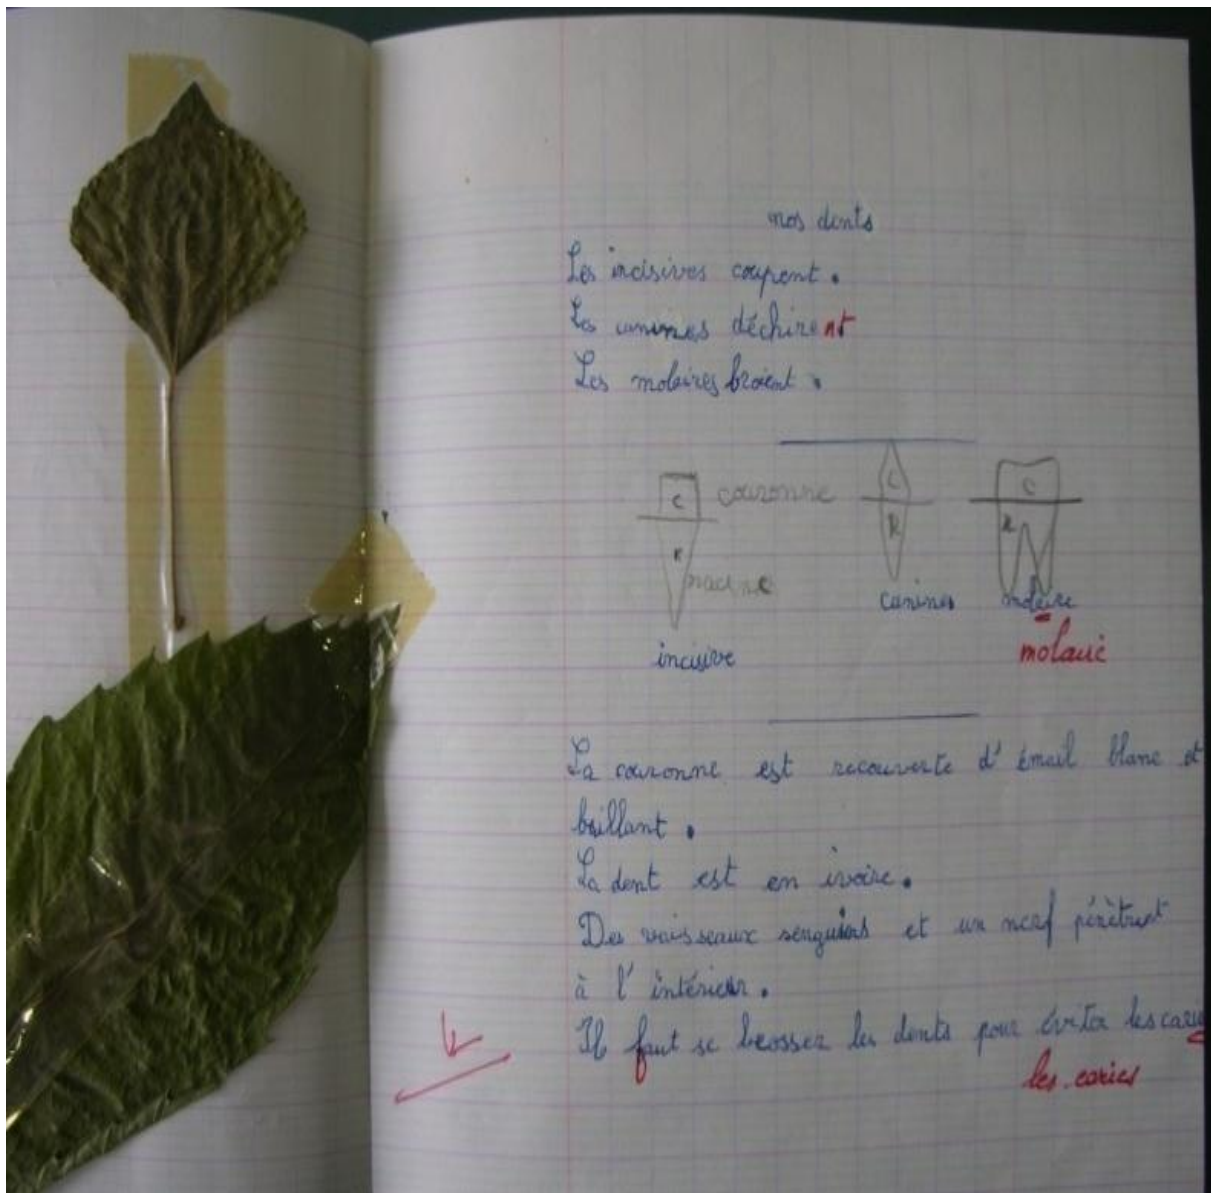 nos dents
Les incisives coupent.
Les canines déchirent
Les molaires broient.
C couronne C C
R R R
racine
canines molaire
incisive molaire
La couronne est recouverte d'émail blanc et
brillant.
La dent est en ivoire.
Des vaisseaux senguins et un nerf pénètrent
à l'intérieur.
Il faut se brosser les dents pour éviter les caries
les caries